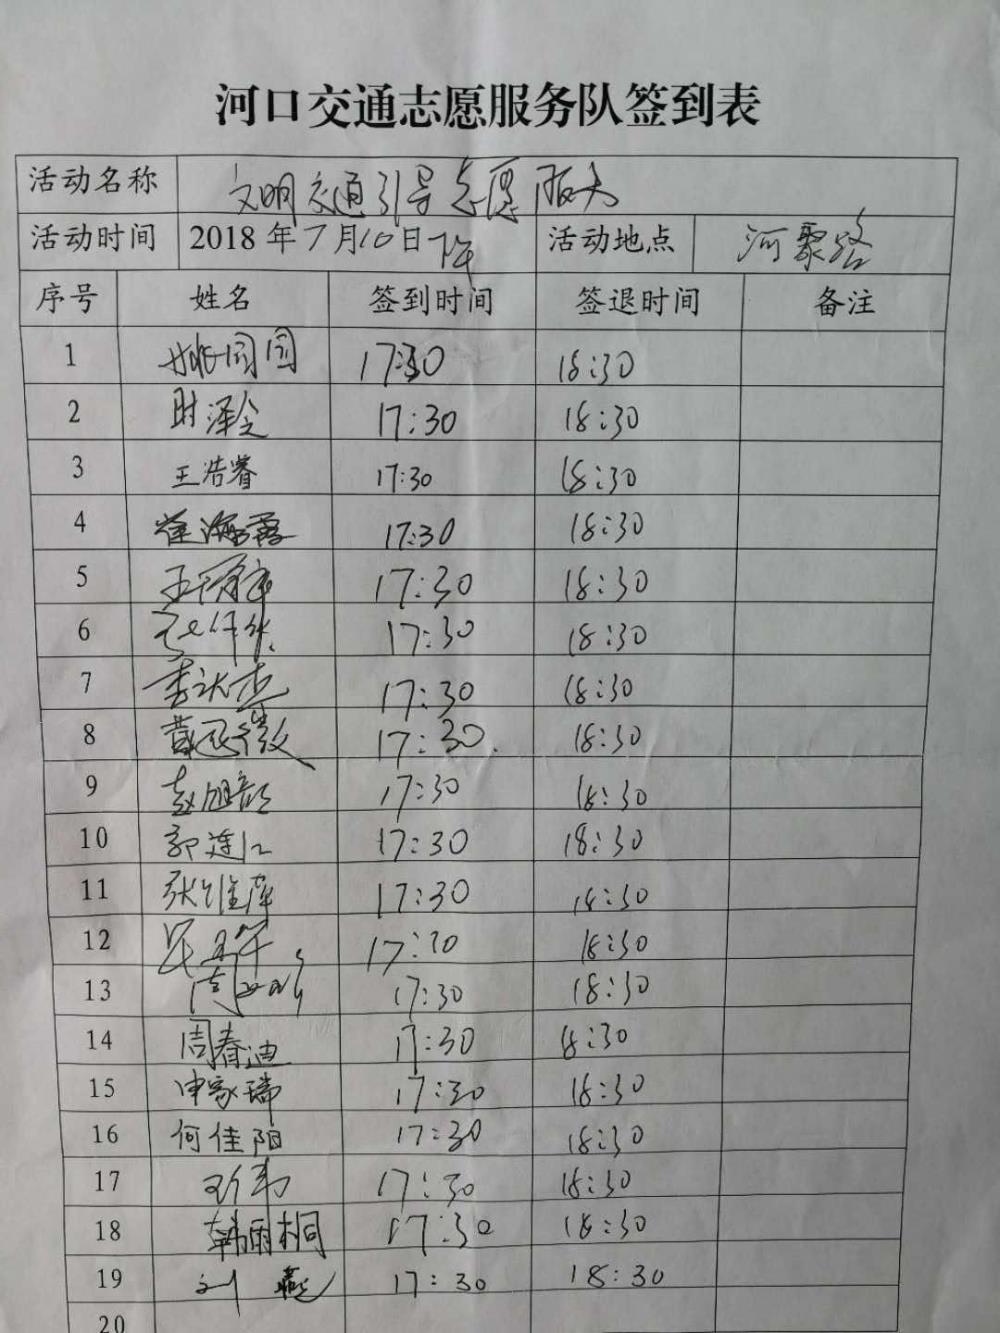 河口交通志愿服务队签到表
活动名称 文明交通引导志愿服务
活动时间 2018年7月10日下午 活动地点 河聚路
序号 姓名 签到时间 签退时间 备注
1 姚园园 17:30 18:30
2 时泽令 17:30 18:30
3 王浩睿 17:30 18:30
4 崔海霞 17:30 18:30
5 17:30 18:30
6 17:30 18:30
7 17:30 18:30
8 17:30 18:30
9 17:30 18:30
10 郭连江 17:30 18:30
11 张维萍 17:30 18:30
12 17:30 18:30
13 17:30 18:30
14 周春迪 17:30 18:30
15 申家瑞 17:30 18:30
16 何佳阳 17:30 18:30
17 17:30 18:30
18 韩雨桐 17:30 18:30
19 刘燕 17:30 18:30
20